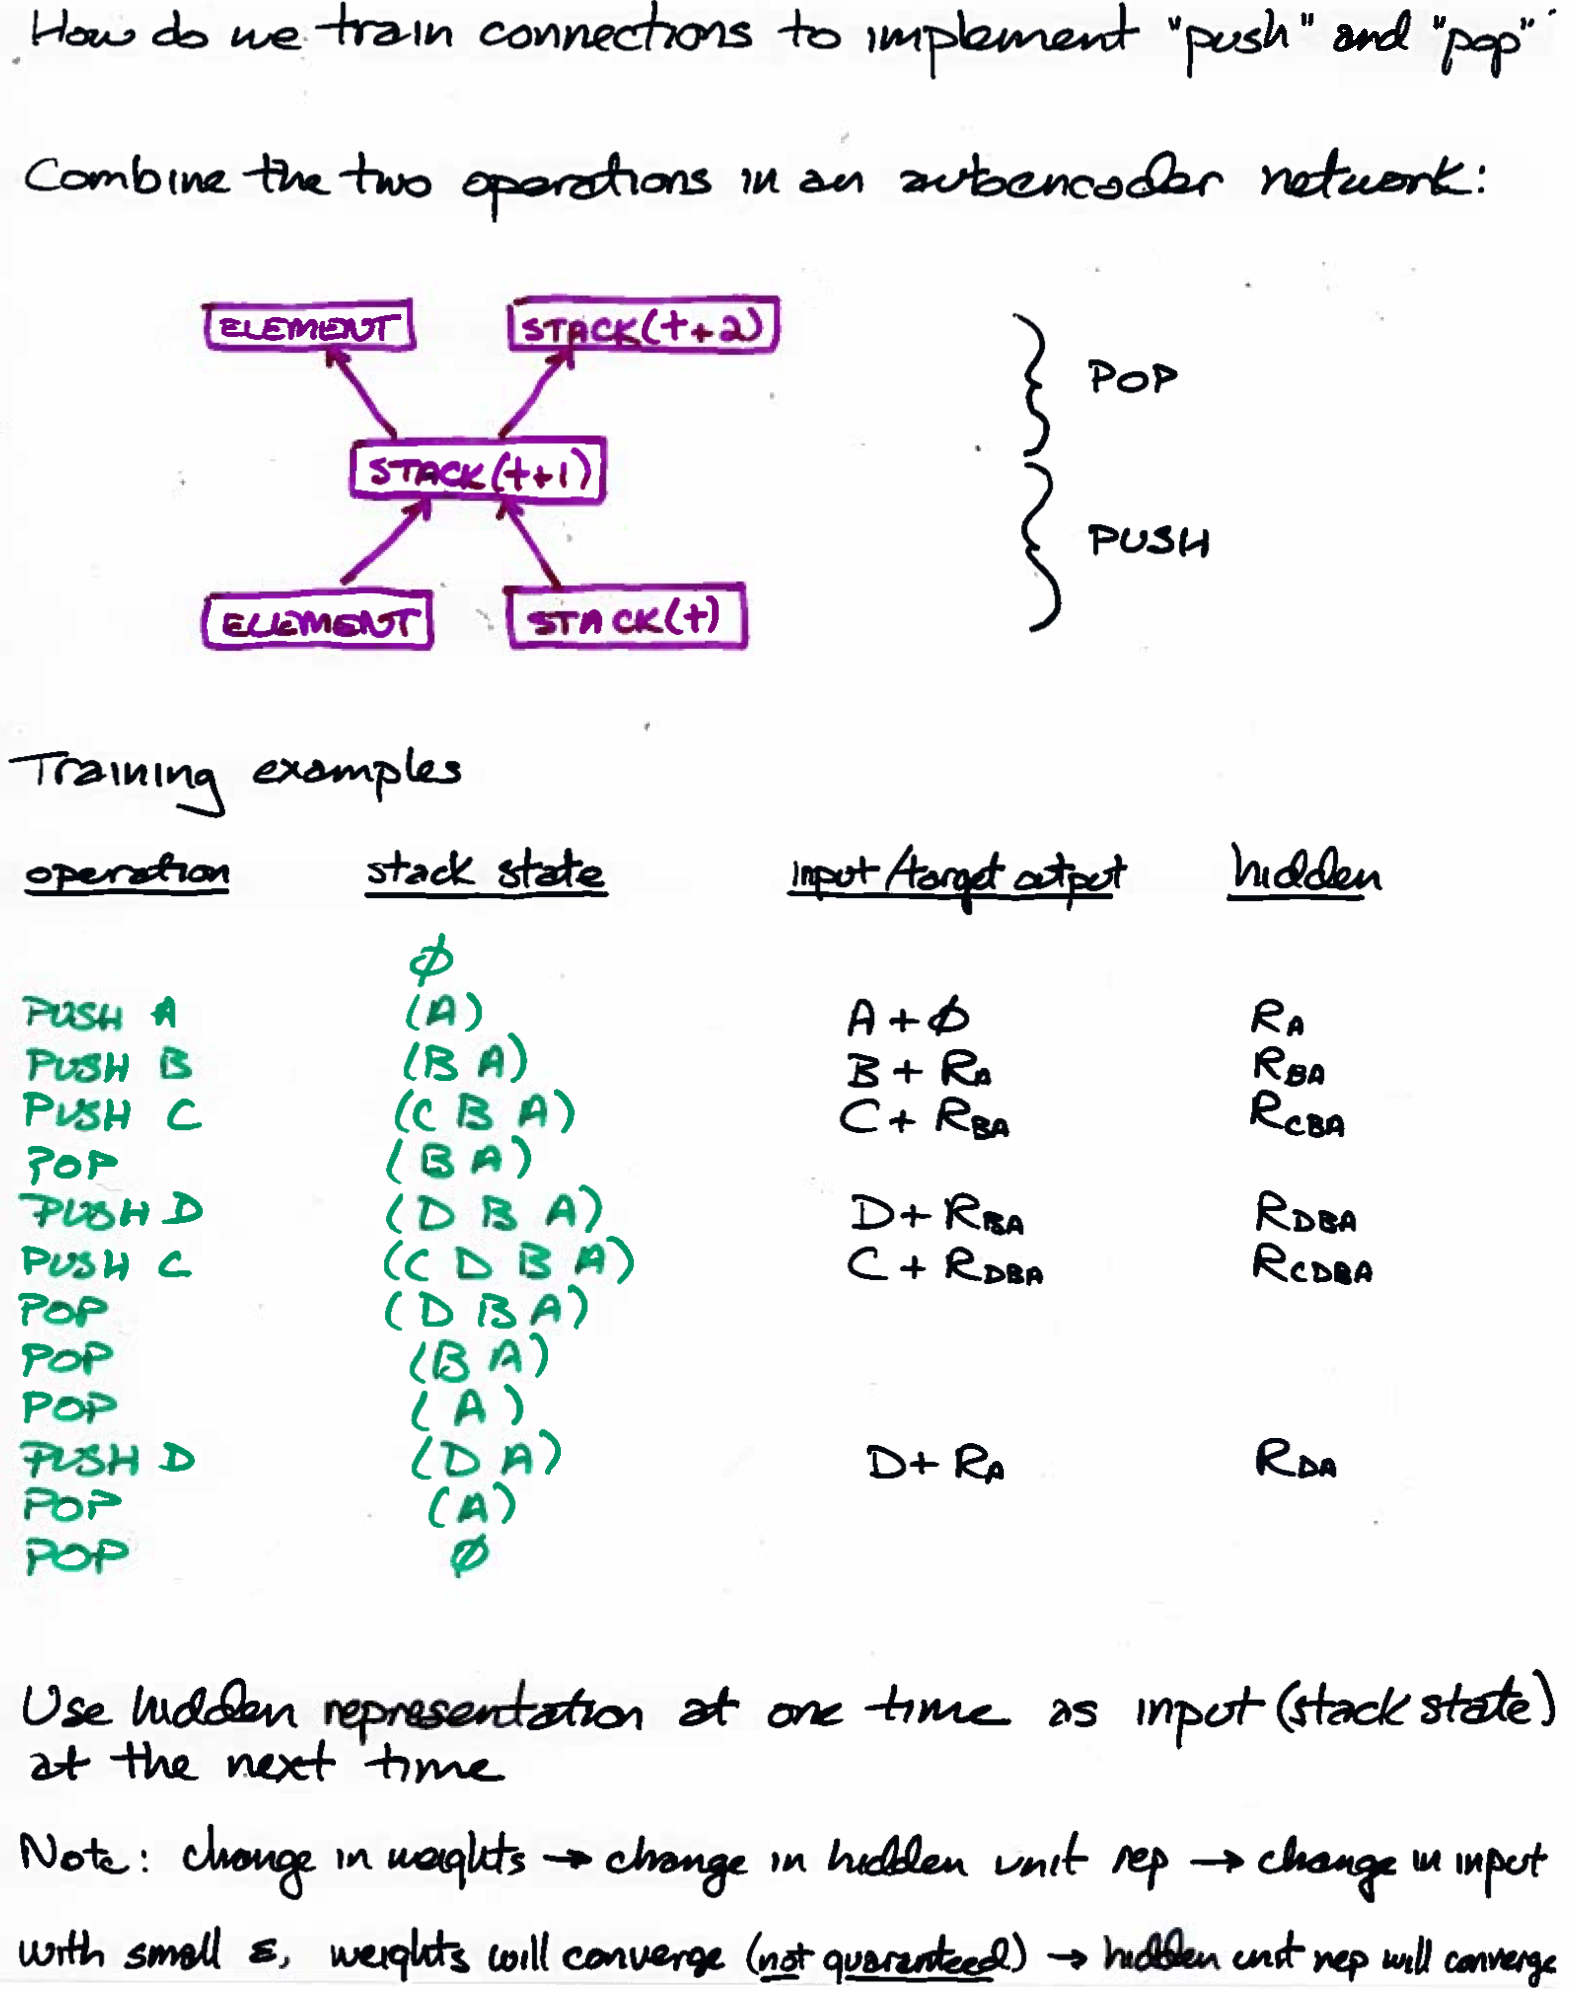 How do we train connections to implement "push" and "pop"
Combine the two operations in an autoencoder network:
ELEMENT STACK(t+2)
POP
STACK(t+1)
PUSH
ELEMENT STACK(t)
Training examples
operation stack state input/target output hidden
ϕ
PUSH A (A) A + ϕ R_A
PUSH B (B A) B + R_A R_BA
PUSH C (C B A) C + R_BA R_CBA
POP (B A)
PUSH D (D B A) D + R_BA R_DBA
PUSH C (C D B A) C + R_DBA R_CDBA
POP (D B A)
POP (B A)
POP (A)
PUSH D (D A) D + R_A R_DA
POP (A)
POP ϕ
Use hidden representation at one time as input (stack state)
at the next time
Note: change in weights → change in hidden unit rep → change in input
with small ε, weights will converge (not guaranteed) → hidden unit rep will converge